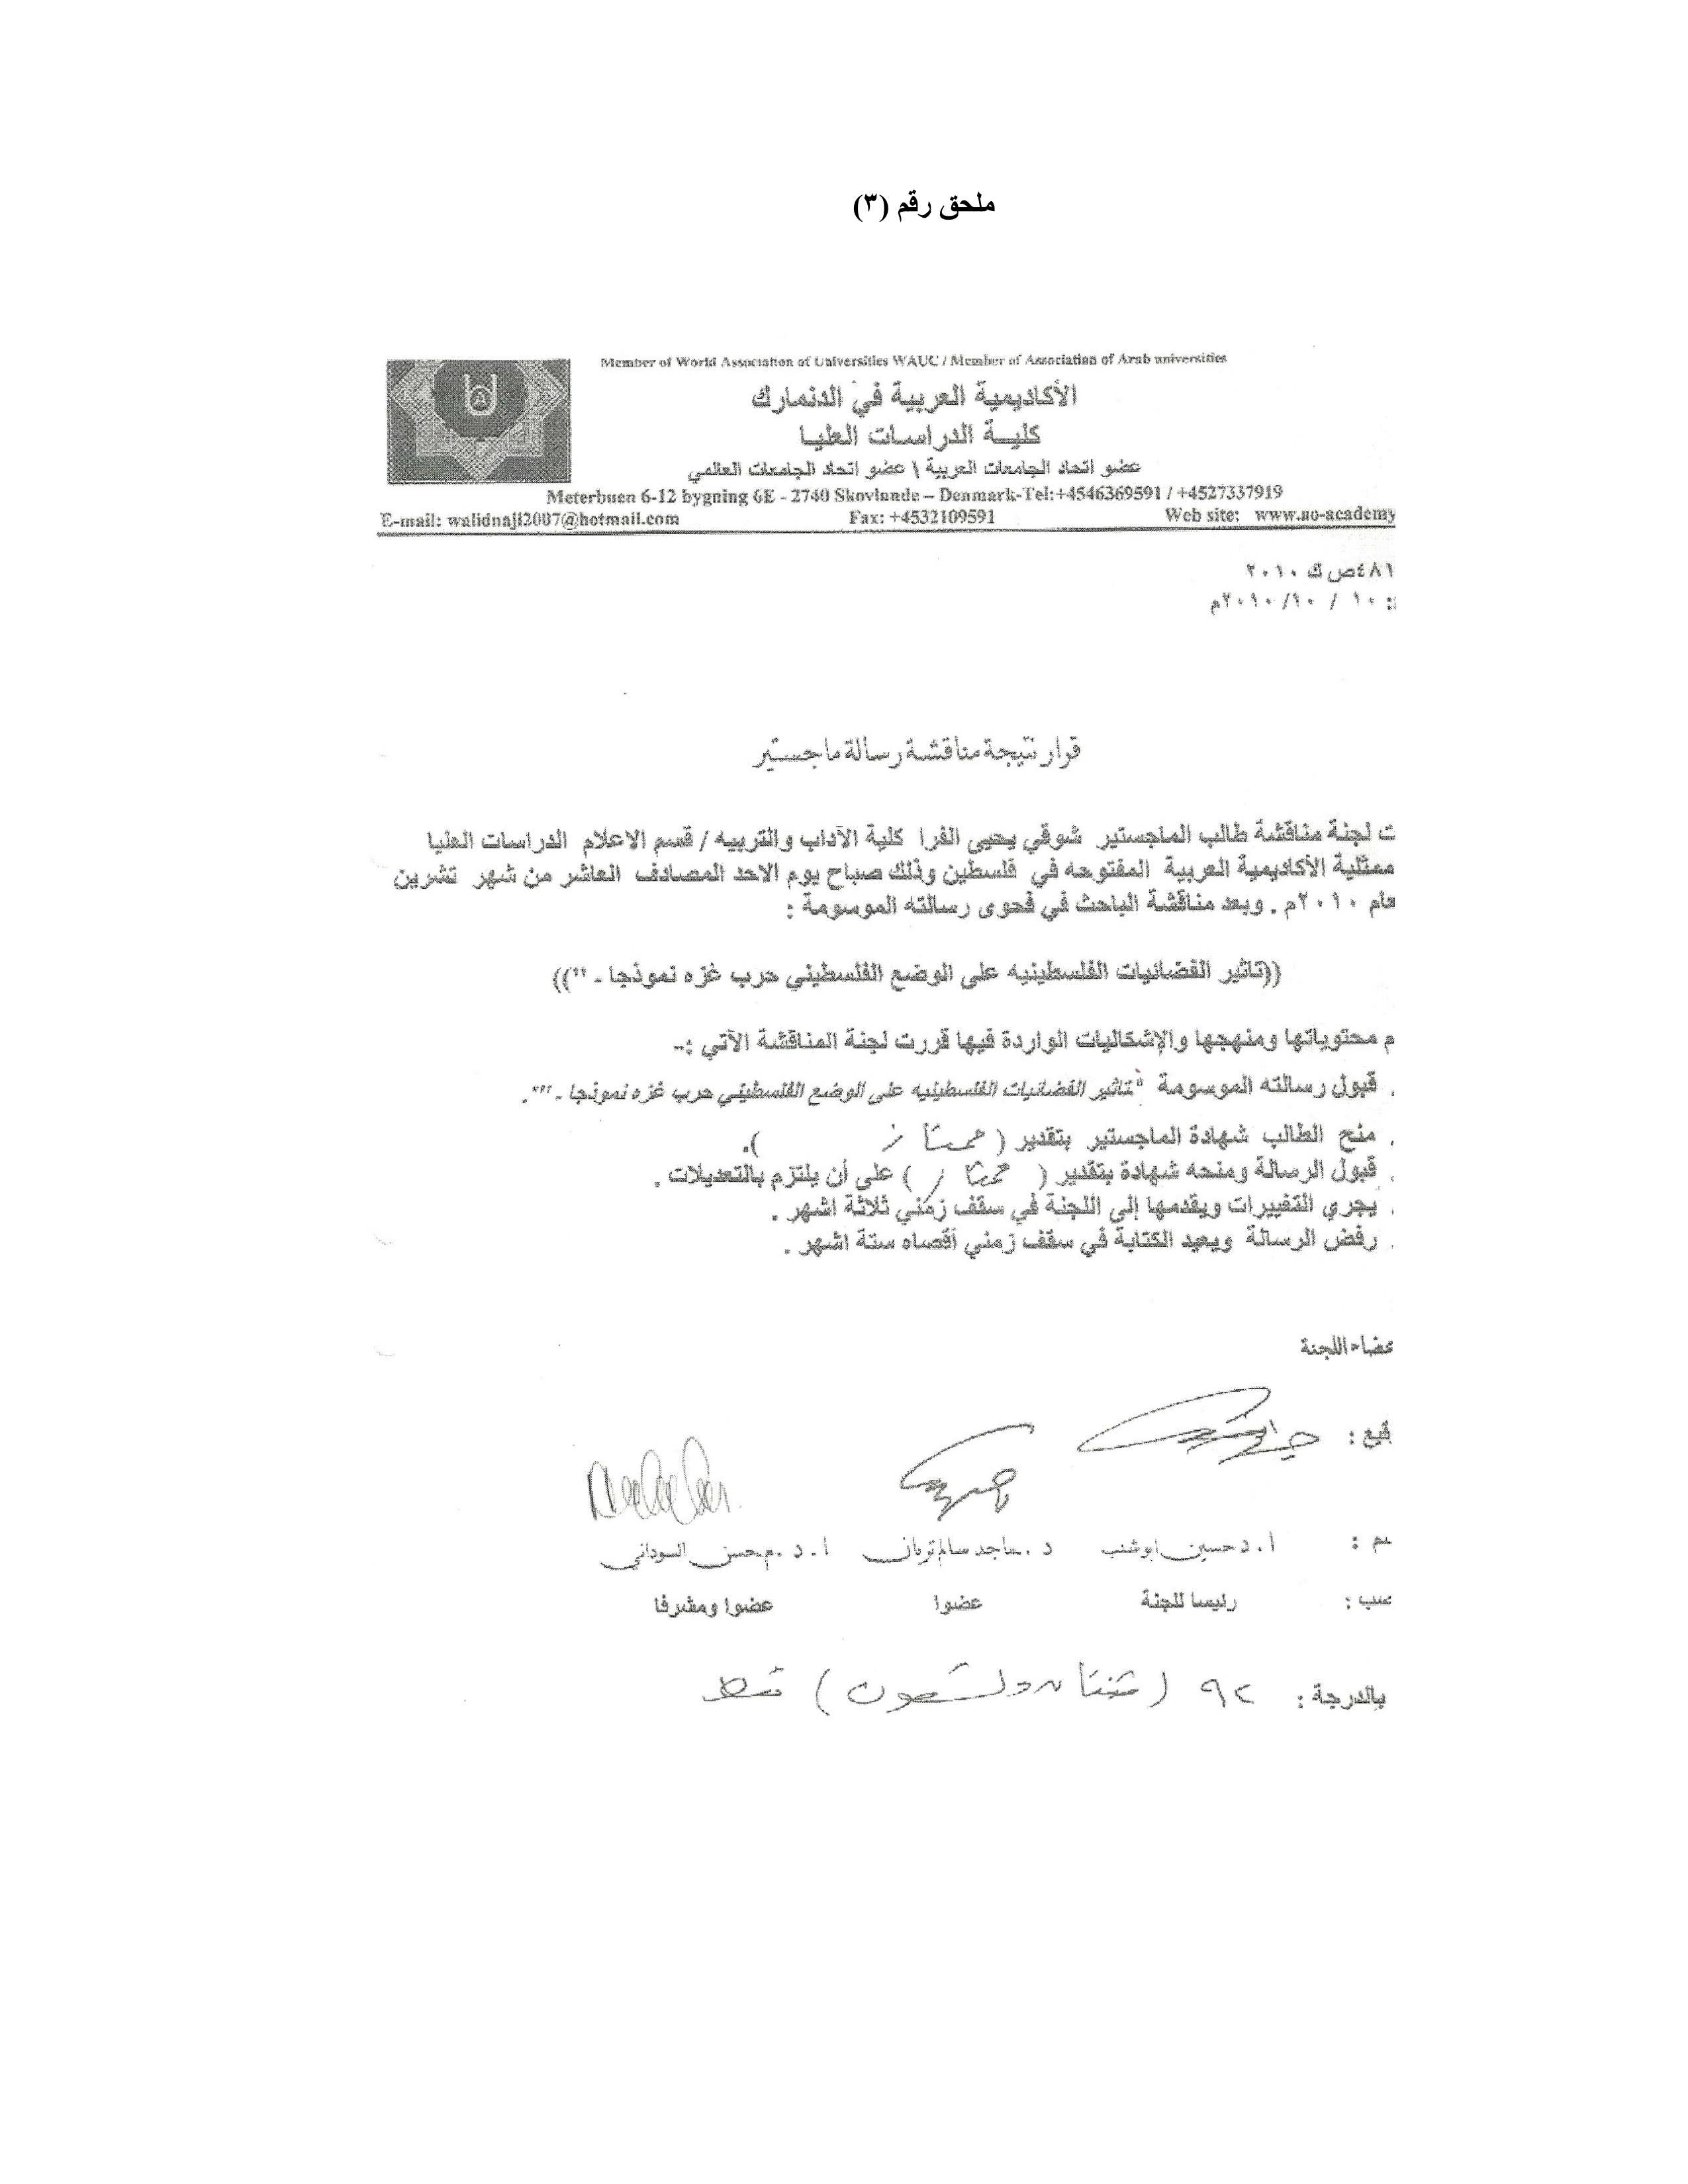 ملحق رقم (٣)
Member of World Association of Universities WAUC / Member of Association of Arab universities
الأكاديمية العربية في الدنمارك
كلية الدراسات العليا
عضو اتحاد الجامعات العربية \ عضو اتحاد الجامعات العالمي
Meterbuen 6-12 bygning 6E - 2740 Skovlunde – Denmark-Tel:+4546369591 / +4527337919
E-mail: walidnaji2007@hotmail.com Fax: +4532109591 Web site: www.ao-academy
٤٨٦ص ك ٢٠١٠
: ١٠ / ١٠/ ٢٠١٠م
قرار نتيجة مناقشة رسالة ماجستير
ت لجنة مناقشة طالب الماجستير شوقي يحيى الفرا كلية الآداب والتربيه / قسم الاعلام الدراسات العليا
ممثلية الأكاديمية العربية المفتوحه في فلسطين وذلك صباح يوم الاحد المصادف العاشر من شهر تشرين
عام ٢٠١٠م . وبعد مناقشة الباحث في فحوى رسالته الموسومة :
((تاثير الفضائيات الفلسطينيه على الوضع الفلسطيني حرب غزه نموذجا - "))
م محتوياتها ومنهجها والإشكاليات الواردة فيها قررت لجنة المناقشة الآتي :--
. قبول رسالته الموسومة "تاثير الفضائيات الفلسطينيه على الوضع الفلسطيني حرب غزه نموذجا - "".
. منح الطالب شهادة الماجستير بتقدير ( ممتاز ).
. قبول الرسالة ومنحه شهادة بتقدير ( ممتاز ) على أن يلتزم بالتعديلات .
. يجري التغييرات ويقدمها إلى اللجنة في سقف زمني ثلاثة اشهر .
. رفض الرسالة ويعيد الكتابة في سقف زمني أقصاه ستة اشهر .
عضاء اللجنة
قيع :
سم : أ . د حسين ابو شنب د . ماجد سالم تربان أ . د . م حسن السوداني
صب : رئيسا للجنة عضوا عضوا ومشرفا
بالدرجة : ٩٢ ( اثنتان وتسعون ) فقط